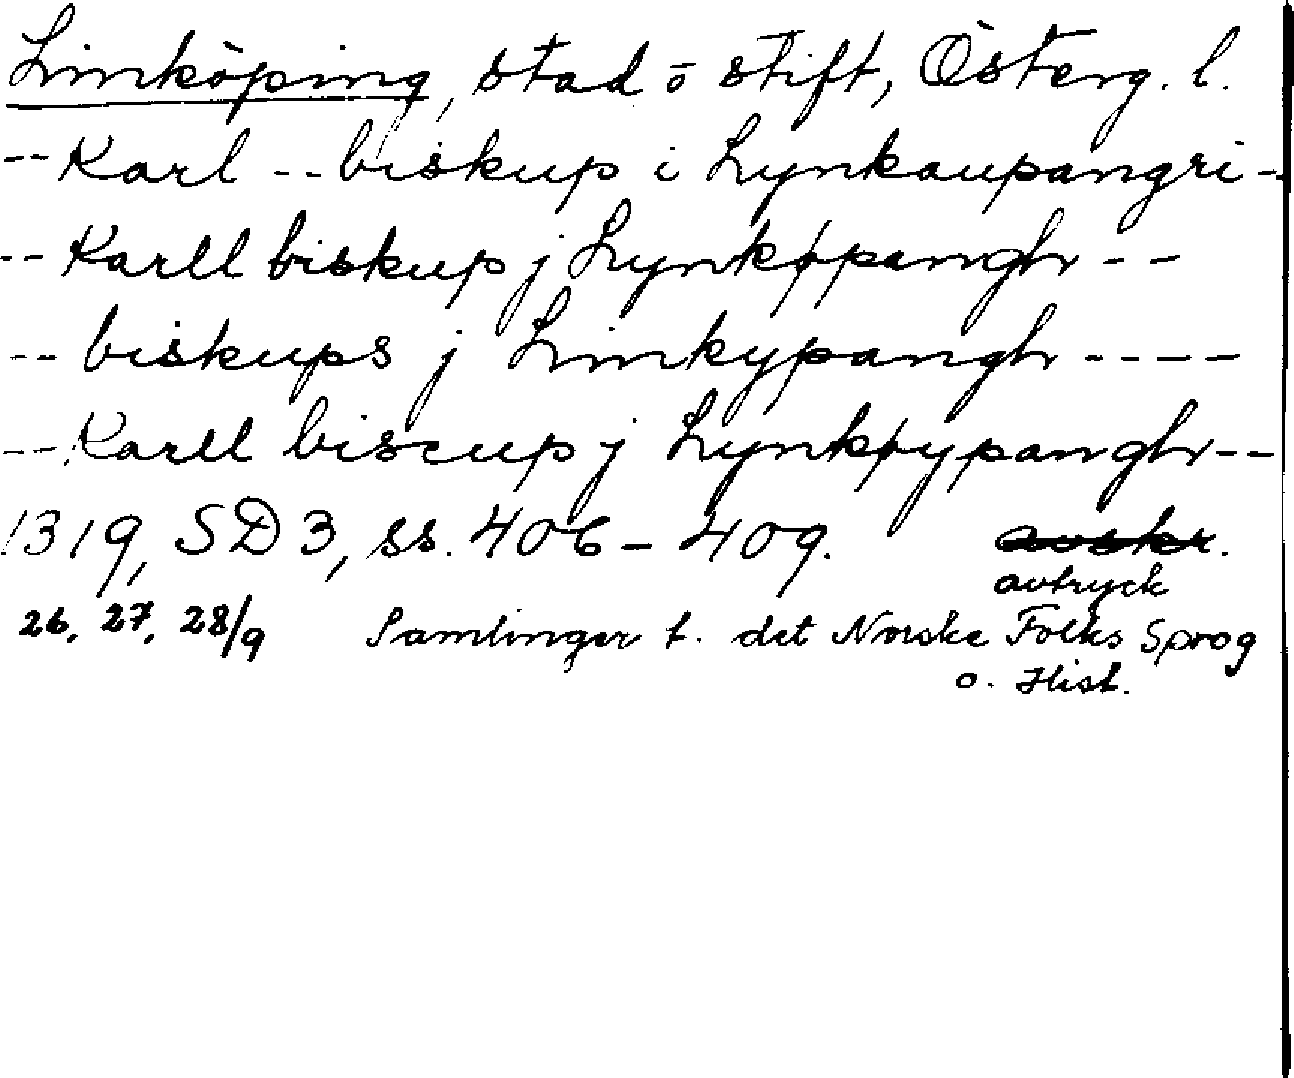 Linköping, stad o stift, Österg. l.
-- Karl -- biskup i Lynkaupangri --
-- Karll biskup j Lynkøpangh --
-- biskups j Linkypangh ----
-- Karll biscup j Lynkøypangh --
1319, SD 3, ss. 406-409. avskr.
avtryck
26, 27, 28/9 Samlinger t. det Norske Folks Sprog
o. Hist.